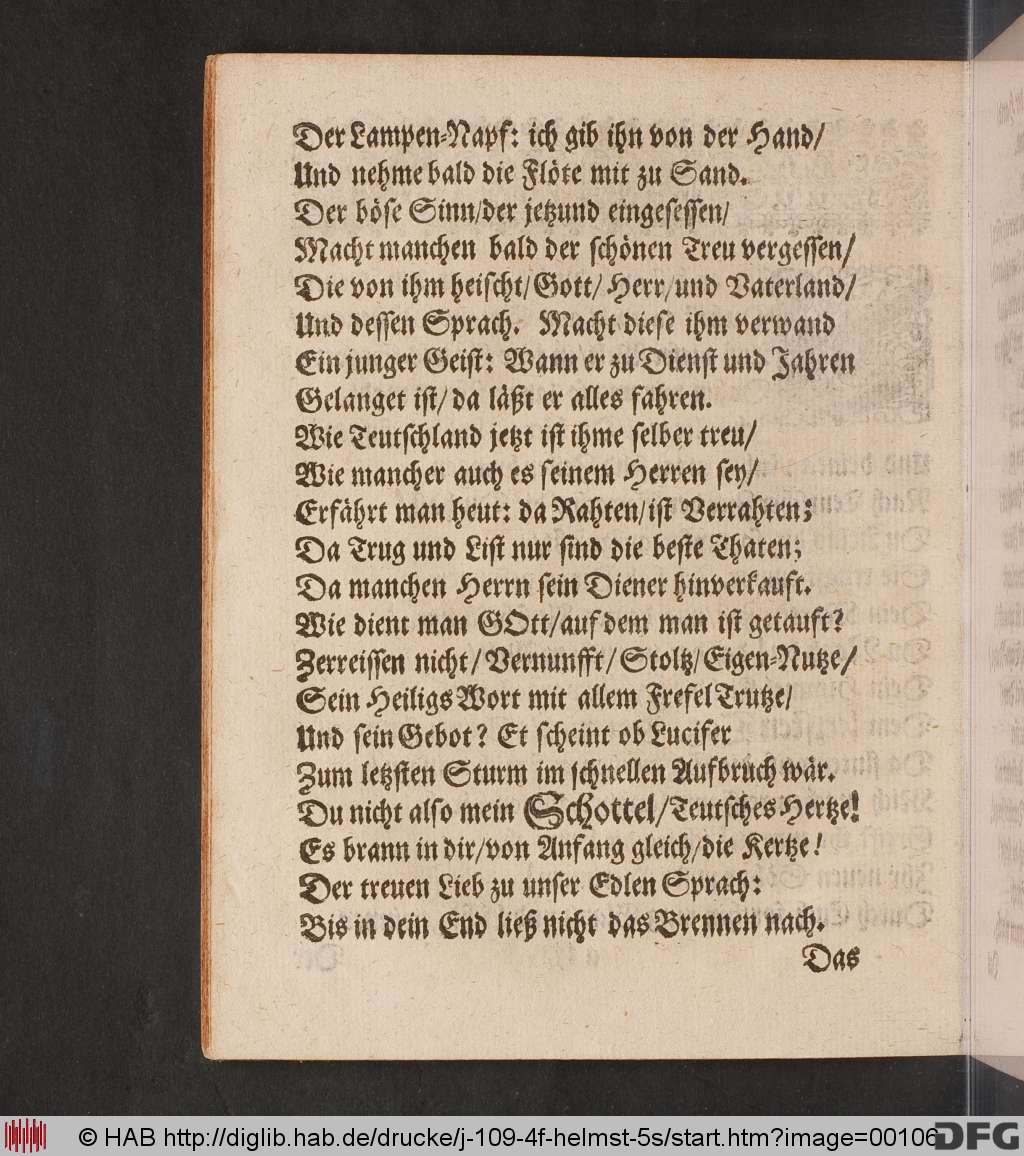 Der Lampen-Napf: ich gib ihn von der Hand/
Und nehme bald die Flöte mit zu Sand.
Der böse Sinn/der jetzund eingesessen/
Macht manchen bald der schönen Treu vergessen/
Die von ihm heischt/Gott/ Herr/und Vaterland/
Und dessen Sprach. Macht diese ihm verwand
Ein junger Geist: Wann er zu Dienst und Jahren
Gelanget ist/ da läßt er alles fahren.
Wie Teutschland jetzt ist ihme selber treu/
Wie mancher auch es seinem Herren sey/
Erfährt man heut: da Rahten/ist Verrahten;
Da Trug und List nur sind die beste Thaten;
Da manchen Herrn sein Diener hinverkauft.
Wie dient man GOtt/auf dem man ist getauft?
Zerreissen nicht/Vernunfft/Stoltz/Eigen-Nutze/
Sein Heiligs Wort mit allem Frefel Trutze/
Und sein Gebot? Et scheint ob Lucifer
Zum letzsten Sturm im schnellen Aufbruch wär.
Du nicht also mein Schottel/Teutsches Hertze!
Es brann in dir/von Anfang gleich/die Kertze!
Der treuen Lieb zu unser Edlen Sprach:
Bis in dein End ließ nicht das Brennen nach.
Das
© HAB http://diglib.hab.de/drucke/j-109-4f-helmst-5s/start.htm?image=00106
DFG